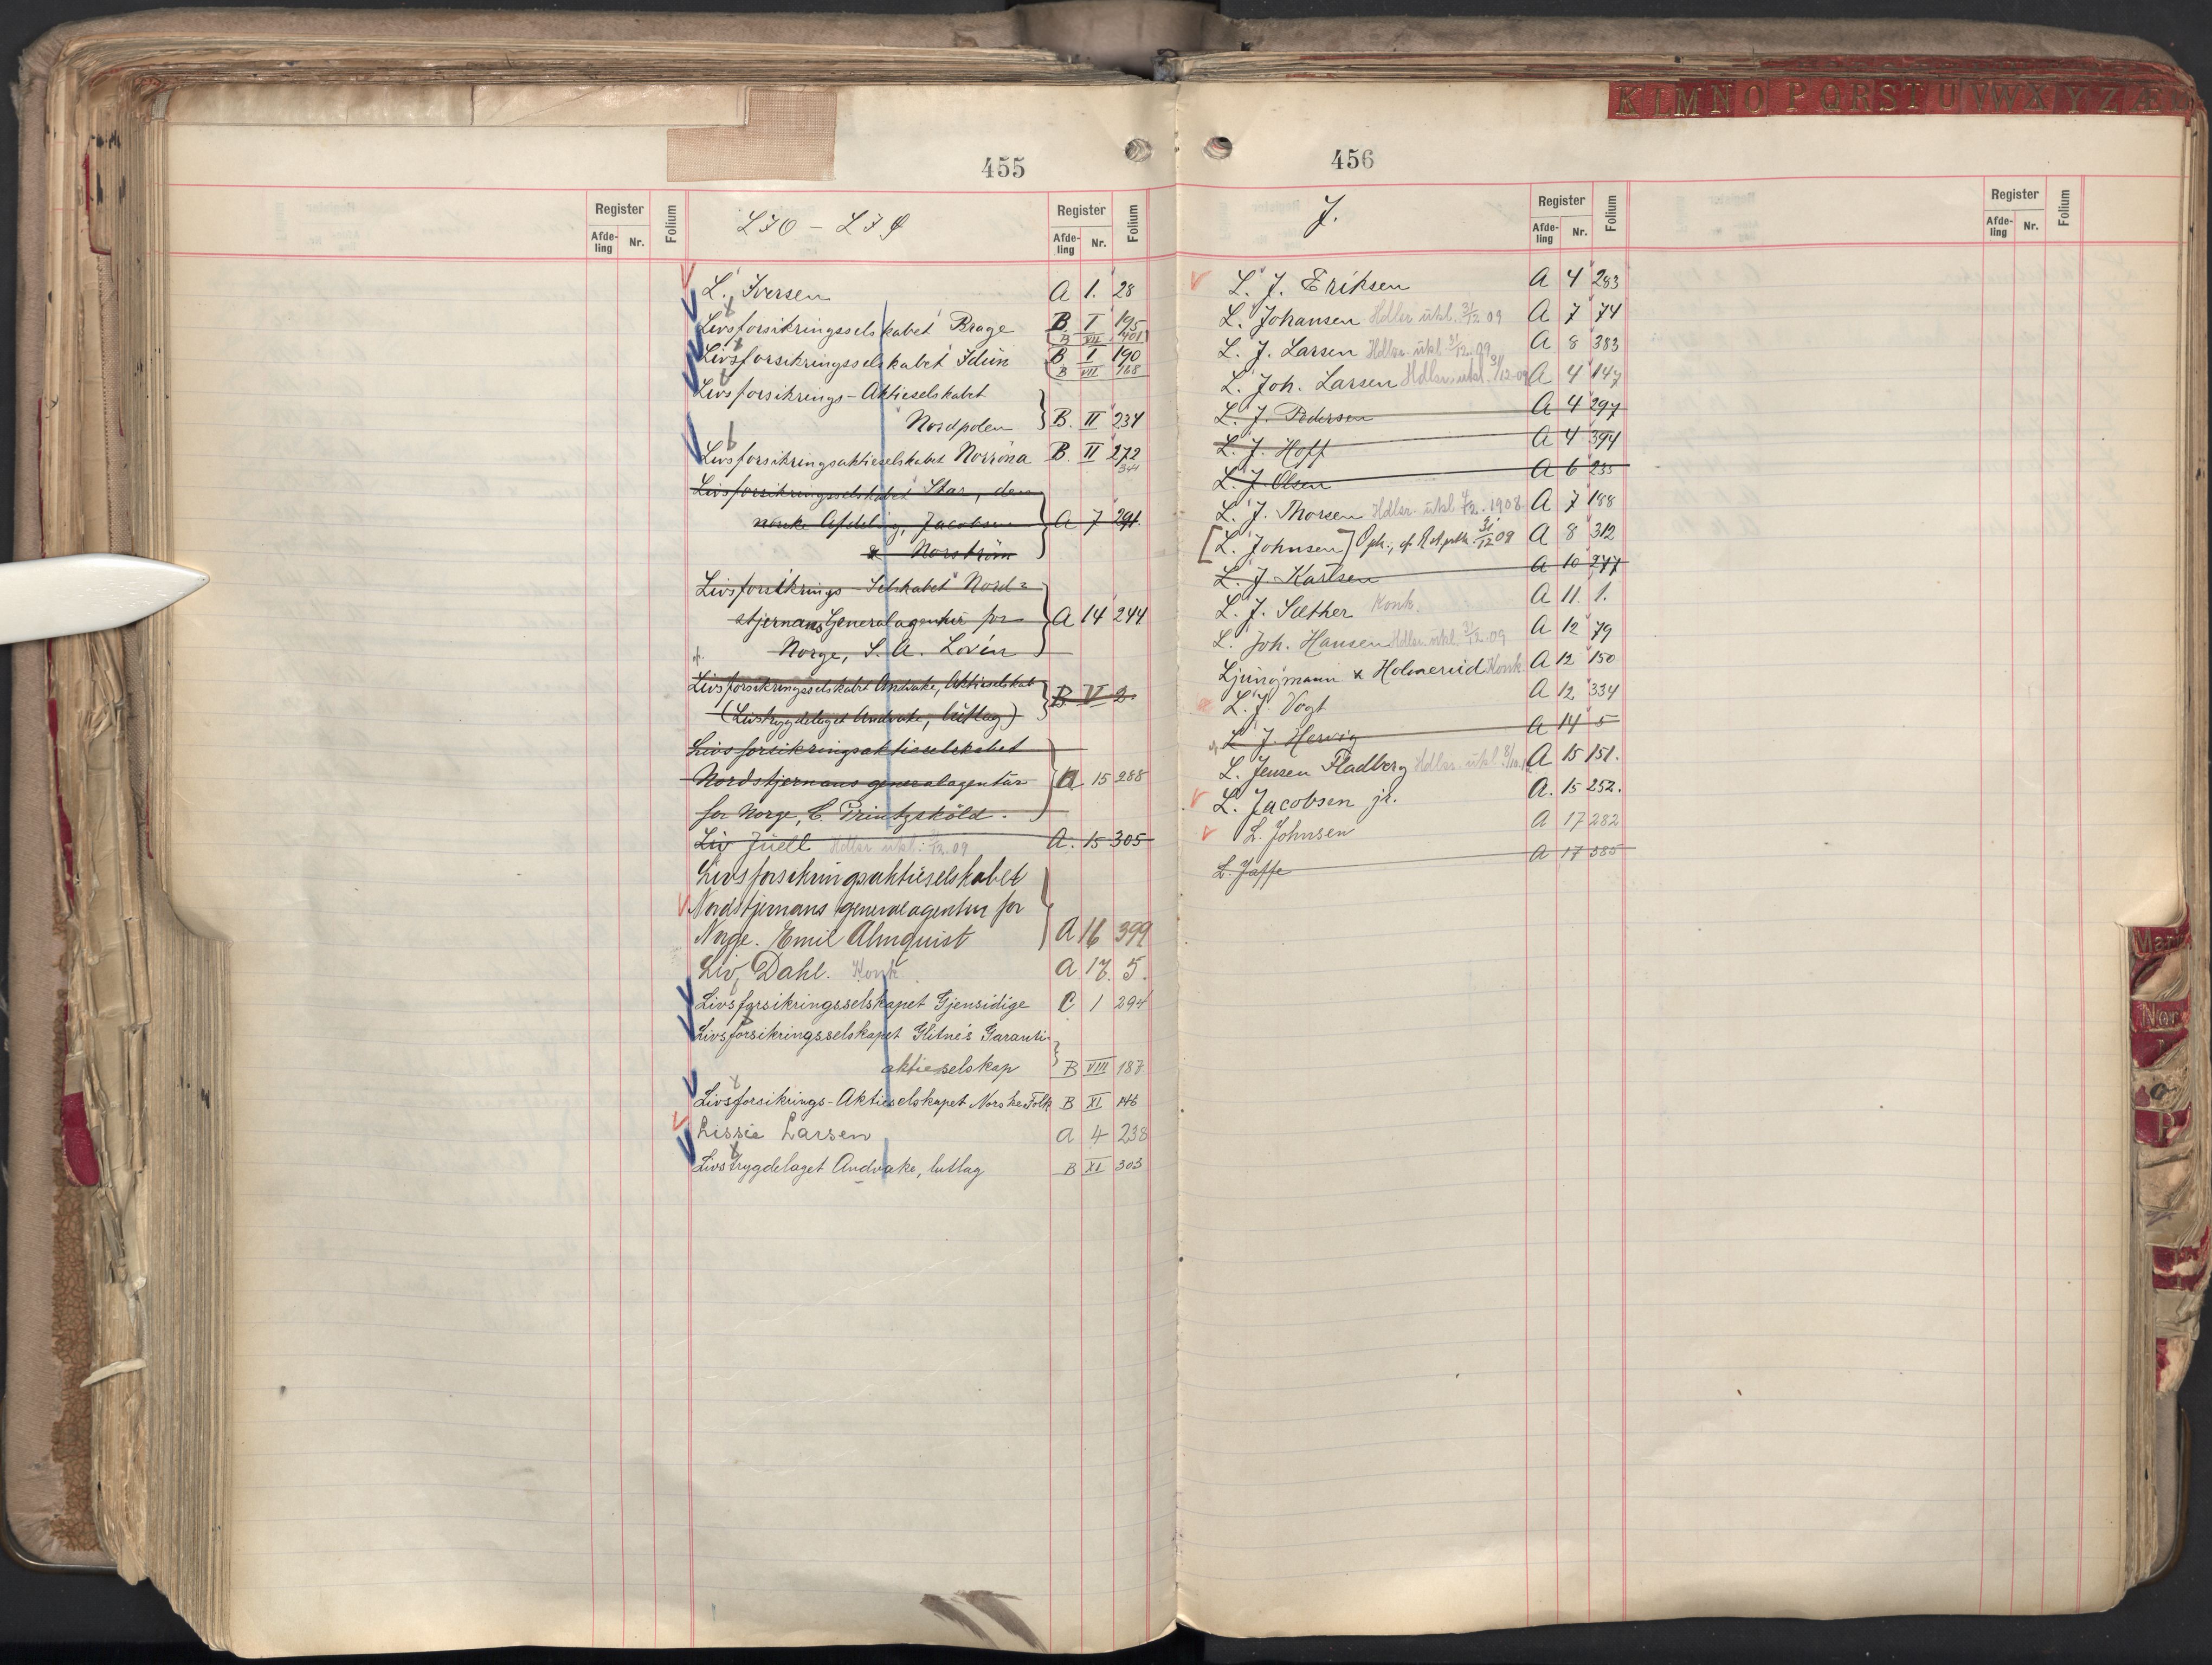 455
Register
Afde-
ling
Nr.
Folium
Register
Afde-
ling
Nr.
Folium
L. Iversen A 1. 28
Livsforsikringsselskabet Brage B. I 195
B VII 401
Livsforsikringsselskabet Idun B I 190
B VII 168
Livsforsikrings-Aktieselskabet
Nordpolen B. II 234
Livsforsikringsaktieselskabet Norröna B. II 272
344
Livsforsikringsselskabet Star, den
norske Afdeling, Jacobsen A 7 291
& Norström
Livsforsikrings-Selskabet Nord=
stjernans Generalagentur for A 14 244
Norge, S. A. Lovén
cf.
Livsforsikringsselskabet Andvake, Aktieselskab B. VI 2
(Livstrygdelaget Andvake, lutlag)
Livsforsikringsaktieselskabet
Nordstjernans generalagentur A 15 288
for Norge, C. Printzsköld.
Liv Juell Hdlsr. utkl. 31/12.09 A. 15 305
Livsforsikringsaktieselskabet
Nordstjernans generalagentur for
Norge. Emil Almquist A 16 399
Liv Dahl. Konk A 17. 5.
Livsforsikringsselskapet Gjensidige C 1 294
Livsforsikringsselskapet Glitne's Garanti
aktieselskap B VIII 187
Livsforsikrings-Aktieselskapet Norske Folk B XI 146
Lissie Larsen A 4 238
Livstrygdelaget Andvake, lutlag B XI 303
456
K L M N O P Q R S T U V W X Y Z Æ
J.
Register
Afde-
ling
Nr.
Folium
Register
Afde-
ling
Nr.
Folium
L. J. Eriksen A 4 283
L. Johansen Hdlsr. utkl. 31/12 09 A 7 74
L. J. Larsen Hdlsr. utkl. 31/12.09 A 8 383
L. Joh. Larsen Hdlsr. utkl. 31/12-09 A 4 147
L. J. Pedersen A 4 297
L. J. Hoff A 4 394
L. J. Olsen A 6 235
L. J. Thorsen Hdlsr. utkl. 4/12. 1908 A 7 188
[L. Johnsen] Oph., cf. 31/12 09 A 8 312
L. J. Karlsen A 10 277
L. J. Sæther Konk. A 11. 1.
L. Joh. Hansen Hdlsr. utkl. 31/12.09 A 12 79
Ljungmann & Holmerud Konk. A 12 150
L. J. Vogt A 12 334
L. J. Hervig A 14 5
L. Jensen Fladberg Hdlsr. utkl. A 15 151.
L. Jacobsen jr. A. 15 252.
L. Johnsen A 17 282
L. Jaffe A 17 385
Nor
P